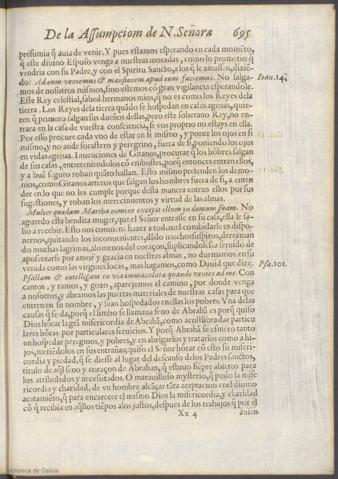 De la Assumpciom de N. Señora 695
presumia q̃ auia de venir. Y pues estamos esperando en cada momẽto,
q̃ este diuino Esposo venga a nuestras moradas, como lo prometio q̃
vendria con su Padre, y con el Spiritu Sancto, a los q̃ le amassen, diziẽ-
do: Ad eum venemus & mansionem apud eum faciemus. No salga- Ioan. 14.
mos de nosotros mismos, sino estemos cõ gran vigilancia esperandole.
Este Rey celestial, sabed hermanos mios, q̃ no es como los Reyes dela
tierra. Los Reyes dela tierra quãdo se hospedan en casas agenas, quie-
ren q̃ primero salgan sus dueños dellas, pero este soberano Rey, no en-
trara en la casa de vuestra consciencia, si vos propeio no estays en ella.
Por esso procure cada vno de estar en si mismo, y poner los ojos en si
mismo, y no ande forastero y peregrino, fuera de si, poniendo los ojos
en vidas agenas. Inuenciones de Gitanos, procurar q̃ los hõbres salgan
de sus casas, entreteniendolos cõ embustes, porq̃ entonces entran ellos,
y a buẽ seguro roban quãto hallan. Esto mismo pretenden los demo-
nios, como Gitanos arteros que salgan los hombres fuera de si, a enten
der en lo que no les cumple porque desta manera entran ellos por sus
sugestiones, y roban los merecimientos y virtud de las almas.
Mulier quædam Martha nomine excepit illum in domum suam. No
aguardo esta bendita muger, que el Señor entrasse en su casa, ella le sa-
lio a recebir. Esto nos conuiene hazer a todos el combidarle es dispo-
nernos, quitando los inconuenientes, dãdo muchos suspiros, derramam
do muchas lagrimas, alomenos del coraçon, suplicandole sea seruido de
aposentarse por amor y gracia en nuestras almas, no durmamos en su
venida como las virgines locas, mas hagamos, como Dauid que dize. Psa. 101.
Psallam & intelligam in via immaculata quando venies ad me. Con
cantos, y ramos, y gozo, aparejemos el camino, por donde venga
a nosotros, y abramos las puertas materiales de nuestras casas para que
entren en su nombre, y sean hospedados en ellas los pobres: Vna delas
causas q̃ se da, porq̃ el limbo se llamaua seno de Abrahã es porq̃ quiso
Dios hõrar la grã misericordia de Abrahã, como acostũbra dar particu
lares hõras por particulares seruicios. Y porq̃ Abrahã se esmero tanto
en hospedar peregrinos, y pobres, y en abrigarlos y tratarlos como a hi-
jos, metiẽdolos en sus entrañas; quiso el Señor hõrar cõ esto su miseri-
cordia y piedad, q̃ se diesse al lugar del descanso delos Padres sanctos,
titulo de aq̃l seno y coraçon de Abrahan, q̃ estuuo siẽpre abierto para
los atribulados y necessitados. O marauilloso mysterio, q̃ pudo la mise
ricordia y charidad, de vn hombre alcãçar tãta aceptacion enel diuino
acatamiẽto, q̃ para encarecer el mismo Dios la misericordia, y charidad
cõ q̃ recibia en aq̃llos tiẽpos alos justos, despues de los trabajos q̃ por el
Xx 4
Biblioteca de Galicia